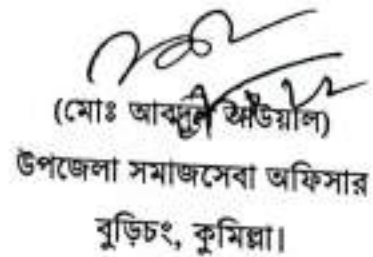 (মোঃ আবদুল আউয়াল)
উপজেলা সমাজসেবা অফিসার
বুড়িচং, কুমিল্লা।